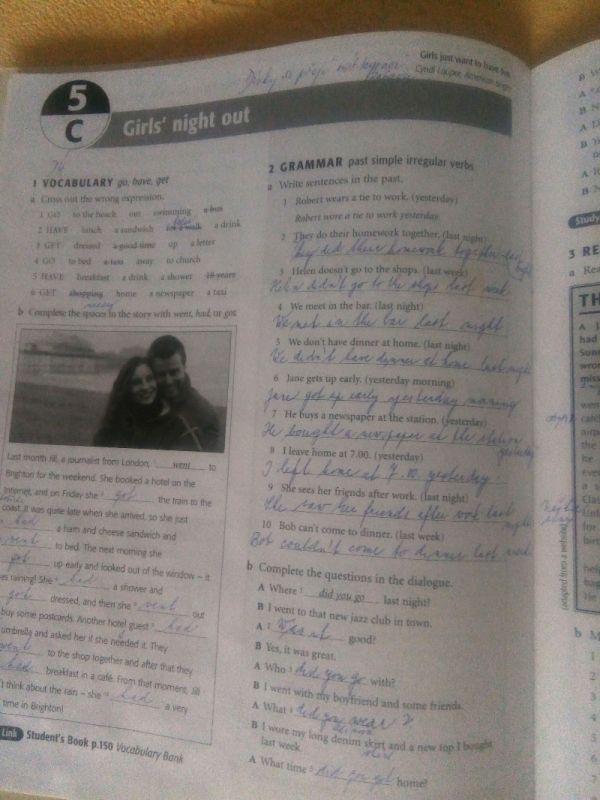 Girls just want to have fun.
Cyndi Lauper, American singer
5
C
Girls' night out
1 VOCABULARY go, have, get
a Cross out the wrong expression.
1 GO to the beach out swimming a bus
2 HAVE lunch a sandwich for a walk a drink
3 GET dressed a good time up a letter
4 GO to bed a taxi away to church
5 HAVE breakfast a drink a shower 18 years
6 GET shopping home a newspaper a taxi
b Complete the spaces in the story with went, had, or got.
Last month Jill, a journalist from London, 1 went to
Brighton for the weekend. She booked a hotel on the
Internet, and on Friday she 2 got the train to the
coast. It was quite late when she arrived, so she just
had a ham and cheese sandwich and
went to bed. The next morning she
got up early and looked out of the window – it
raining! She had a shower and
got dressed, and then she went out
buy some postcards. Another hotel guest had
umbrella and asked her if she needed it. They
went to the shop together and after that they
had breakfast in a café. From that moment, Jill
think about the rain – she had a very
time in Brighton!
Link Student's Book p.150 Vocabulary Bank
2 GRAMMAR past simple irregular verbs
a Write sentences in the past.
1 Robert wears a tie to work. (yesterday)
Robert wore a tie to work yesterday.
2 They do their homework together. (last night)
They did their homework together last night
3 Helen doesn't go to the shops. (last week)
Helen didn't go to the shops last week
4 We meet in the bar. (last night)
We met in the bar last night
5 We don't have dinner at home. (last night)
We didn't have dinner at home last night
6 Jane gets up early. (yesterday morning)
Jane got up early yesterday morning
7 He buys a newspaper at the station. (yesterday)
He bought a newspaper at the station yesterday
8 I leave home at 7.00. (yesterday)
I left home at 7.00. yesterday
9 She sees her friends after work. (last night)
She saw her friends after work last night
10 Bob can't come to dinner. (last week)
Bob couldn't come to dinner last week
b Complete the questions in the dialogue.
A Where 1 did you go last night?
B I went to that new jazz club in town.
A 2 Was it good?
B Yes, it was great.
A Who 3 did you go with?
B I went with my boyfriend and some friends.
A What 4 did you wear ?
B I wore my long denim skirt and a new top I bought
last week.
A What time 5 did you get home?
adapted from a website